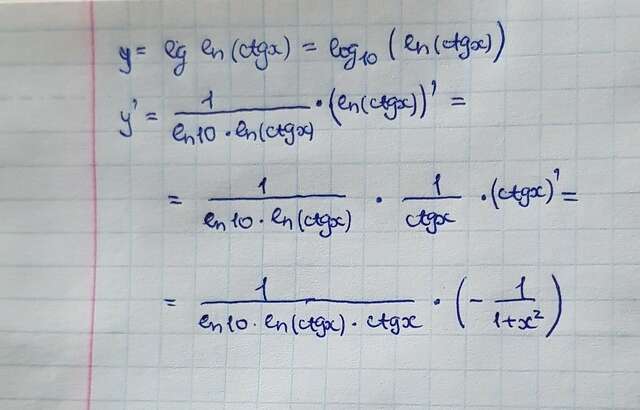 y = lg ln(ctgx) = log₁₀ (ln(ctgx))
y' = 1/(ln10 · ln(ctgx)) · (ln(ctgx))' =
= 1/(ln10 · ln(ctgx)) · 1/ctgx · (ctgx)' =
= 1/(ln10 · ln(ctgx) · ctgx) · (- 1/(1+x²))